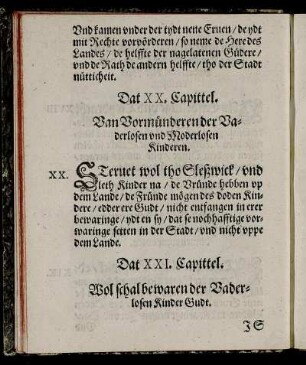 Vnd kamen vnder der tydt nene Eruen / de ydt
mit Rechte vorvörderen / so neme de Here des
Landes / de helffte der nagelatenen Güdere /
vnd de Rath de andern helffte / tho der Stadt
nütticheit.
Dat XX. Capittel.
Van Vormünderen der Va-
derlosen vnd Moderlosen
Kinderen.
XX. STeruet wol tho Sleßwick / vnd
leth Kinder na / de Vründe hebben vp
dem Lande / de Fründe mögen des doden Kin-
dere / edder ere Gudt / nicht entfangen in erer
bewaringe / ydt en sy / dat se nochhafftige vor-
waringe setten in der Stadt / vnd nicht vppe
dem Lande.
Dat XXI. Capittel.
Wol schal bewaren der Vader-
losen Kinder Gudt.
IS